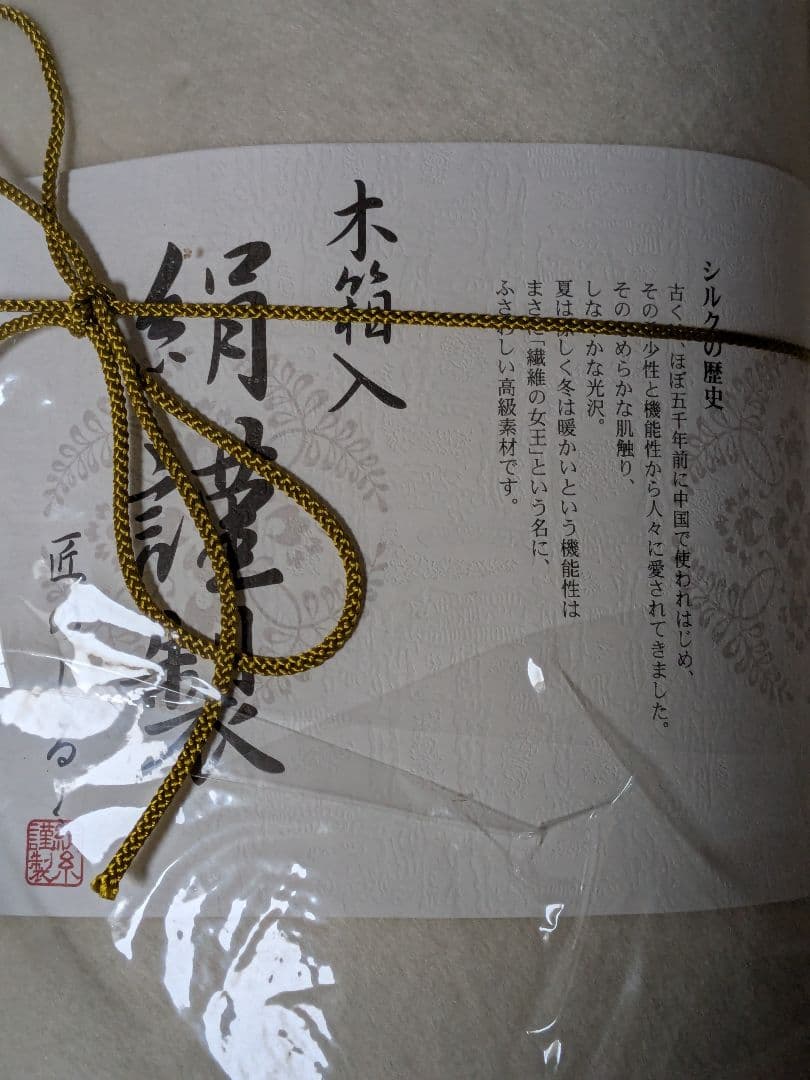 シルクの歴史
古く、ほぼ五千年前に中国で使われはじめ、
その少性と機能性から人々に愛されてきました。
そのめらかな肌触り、
しなかな光沢。
夏は涼しく冬は暖かいという機能性は
まさに「繊維の女王」という名に、
ふさわしい高級素材です。
木箱入
絹謹製
匠
る
謹製